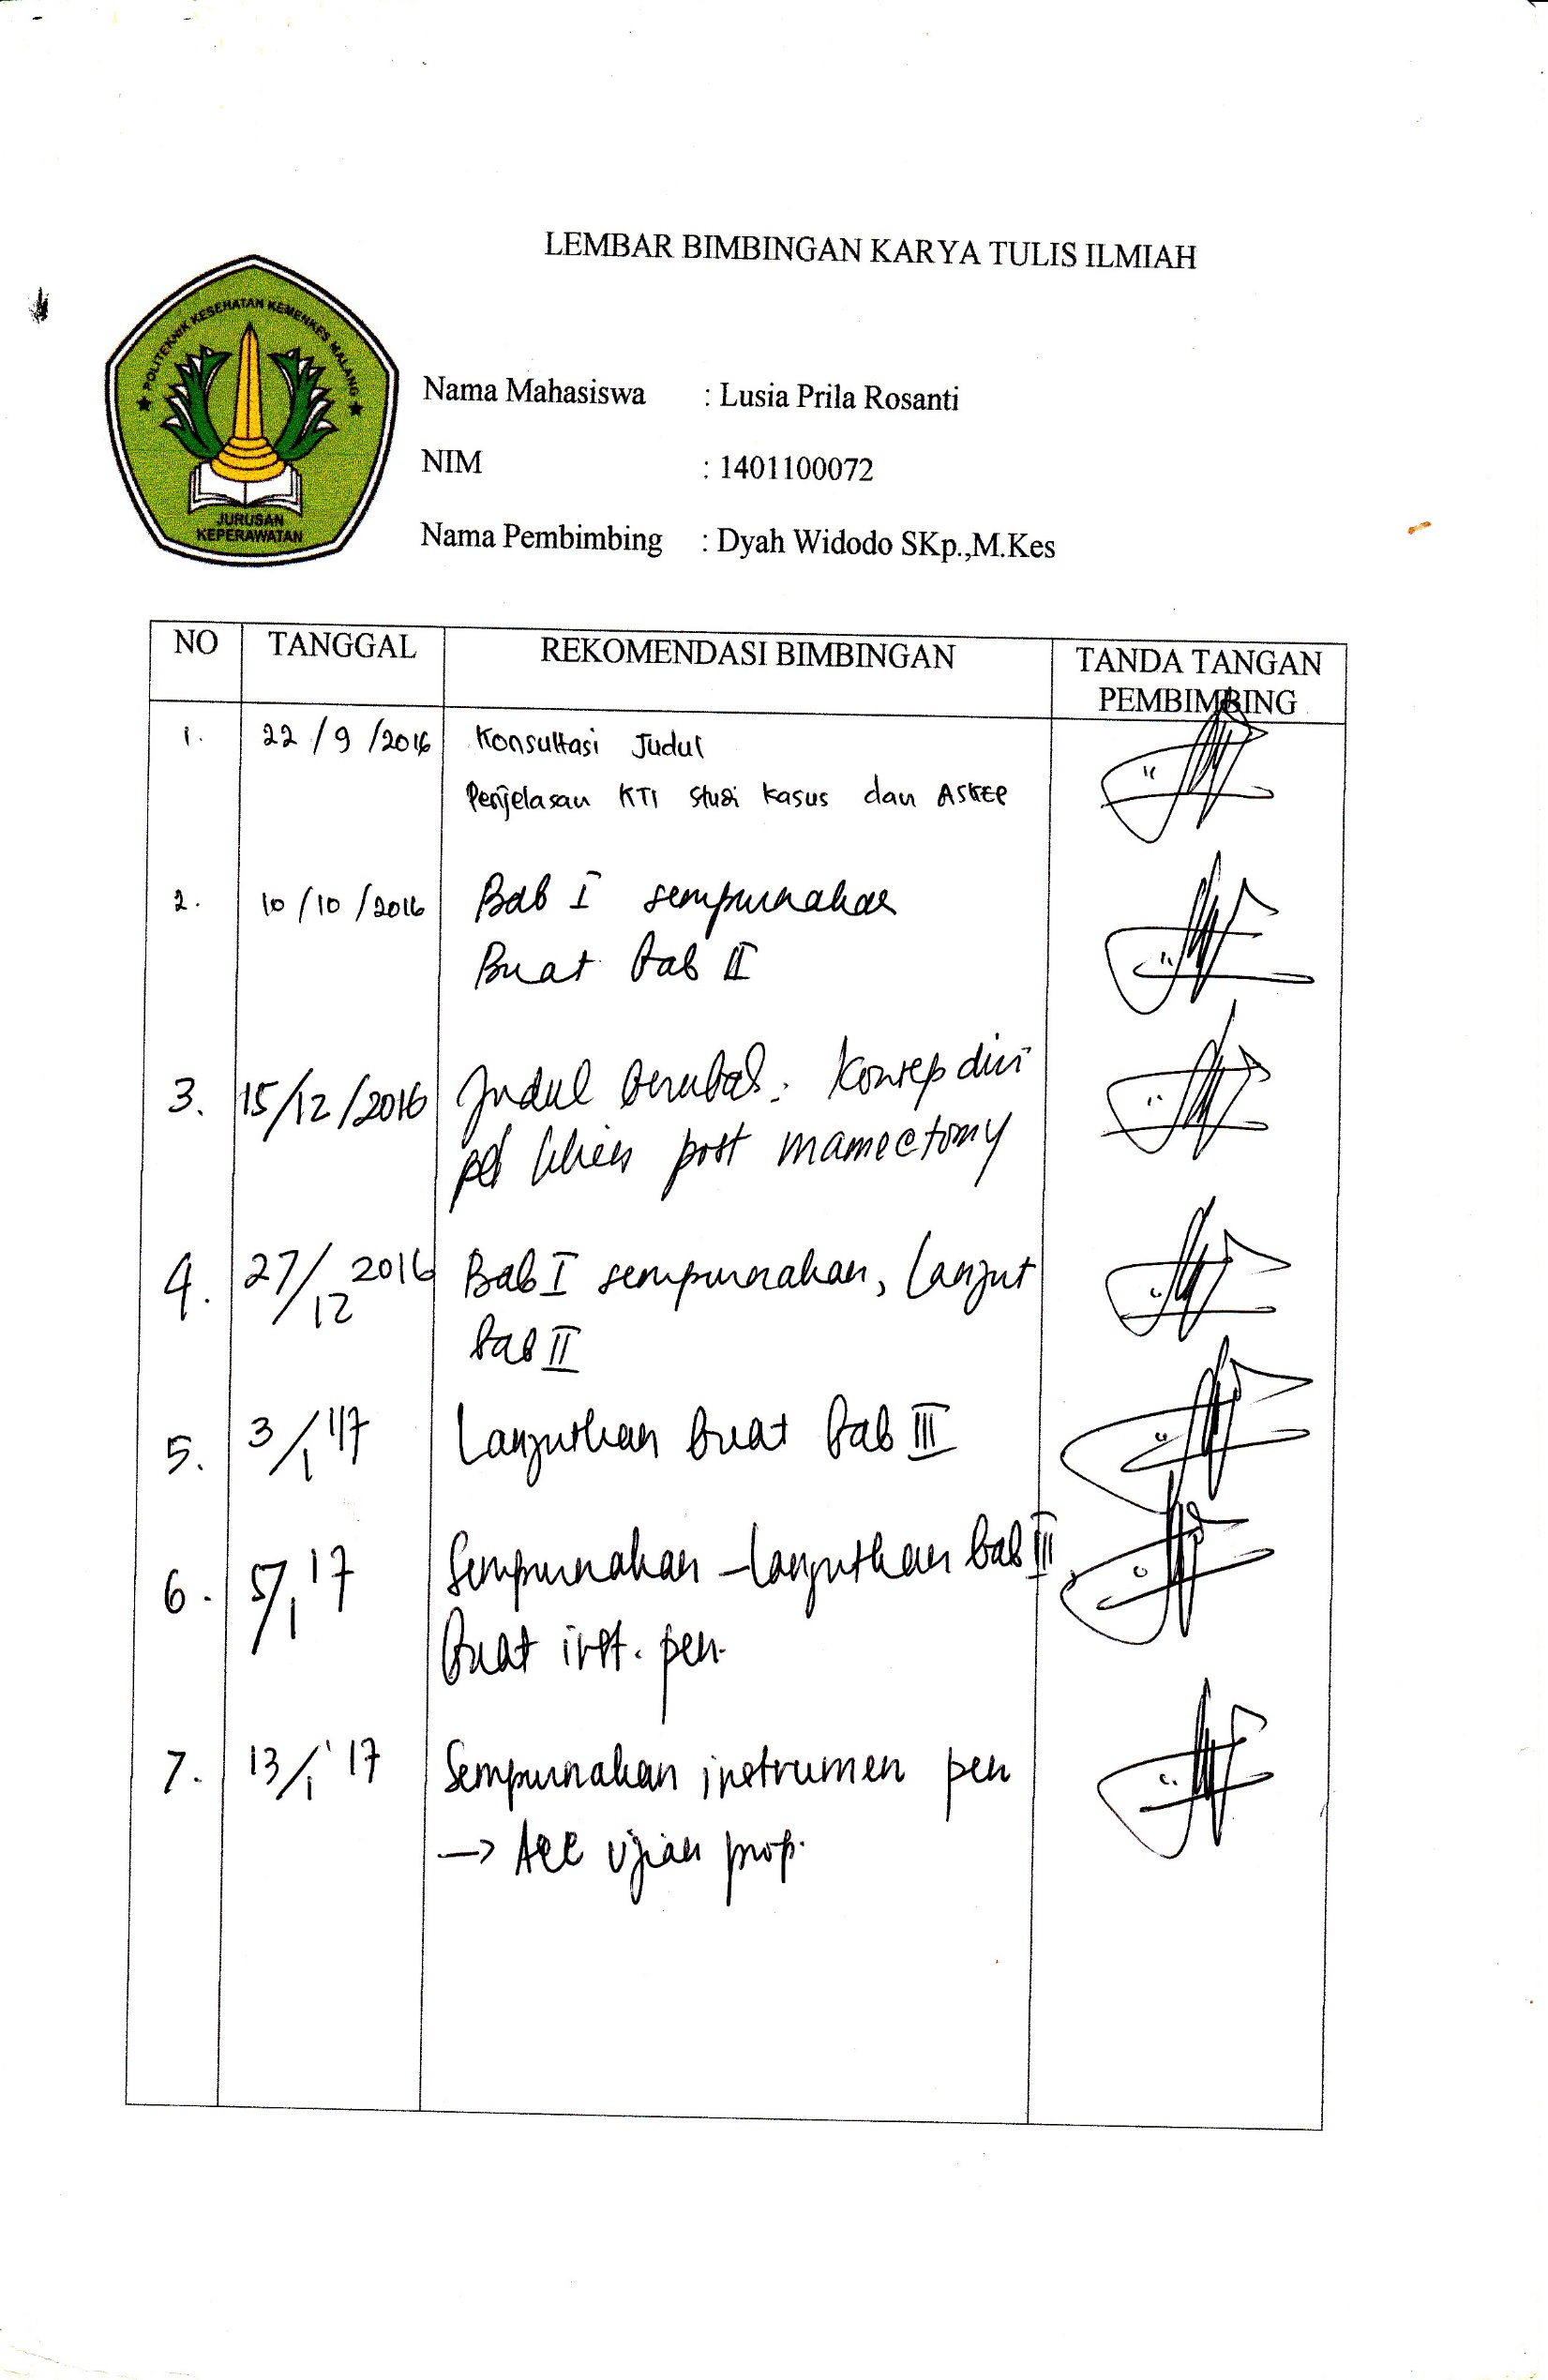 LEMBAR BIMBINGAN KARYA TULIS ILMIAH
POLITEKNIK KESEHATAN KEMENKES MALANG
JURUSAN
KEPERAWATAN
Nama Mahasiswa : Lusia Prila Rosanti
NIM : 1401100072
Nama Pembimbing : Dyah Widodo SKp.,M.Kes
NO TANGGAL REKOMENDASI BIMBINGAN TANDA TANGAN
PEMBIMBING
1. 22/9/2016 Konsultasi Judul
Penjelasan KTI Studi Kasus dan ASKEP
2. 10/10/2016 Bab I sempurnakan
Buat bab II
3. 15/12/2016 Judul berubah: Konsep diri
pd klien post mamectomy
4. 27/12 2016 Bab I sempurnakan, Lanjut
bab II
5. 3/1 '17 Lanjutkan buat bab III
6. 5/1 17 Sempurnakan - lanjutkan bab III
Buat inst. pen.
7. 13/1 '17 Sempurnakan instrumen pen
→ Acc ujian prop.